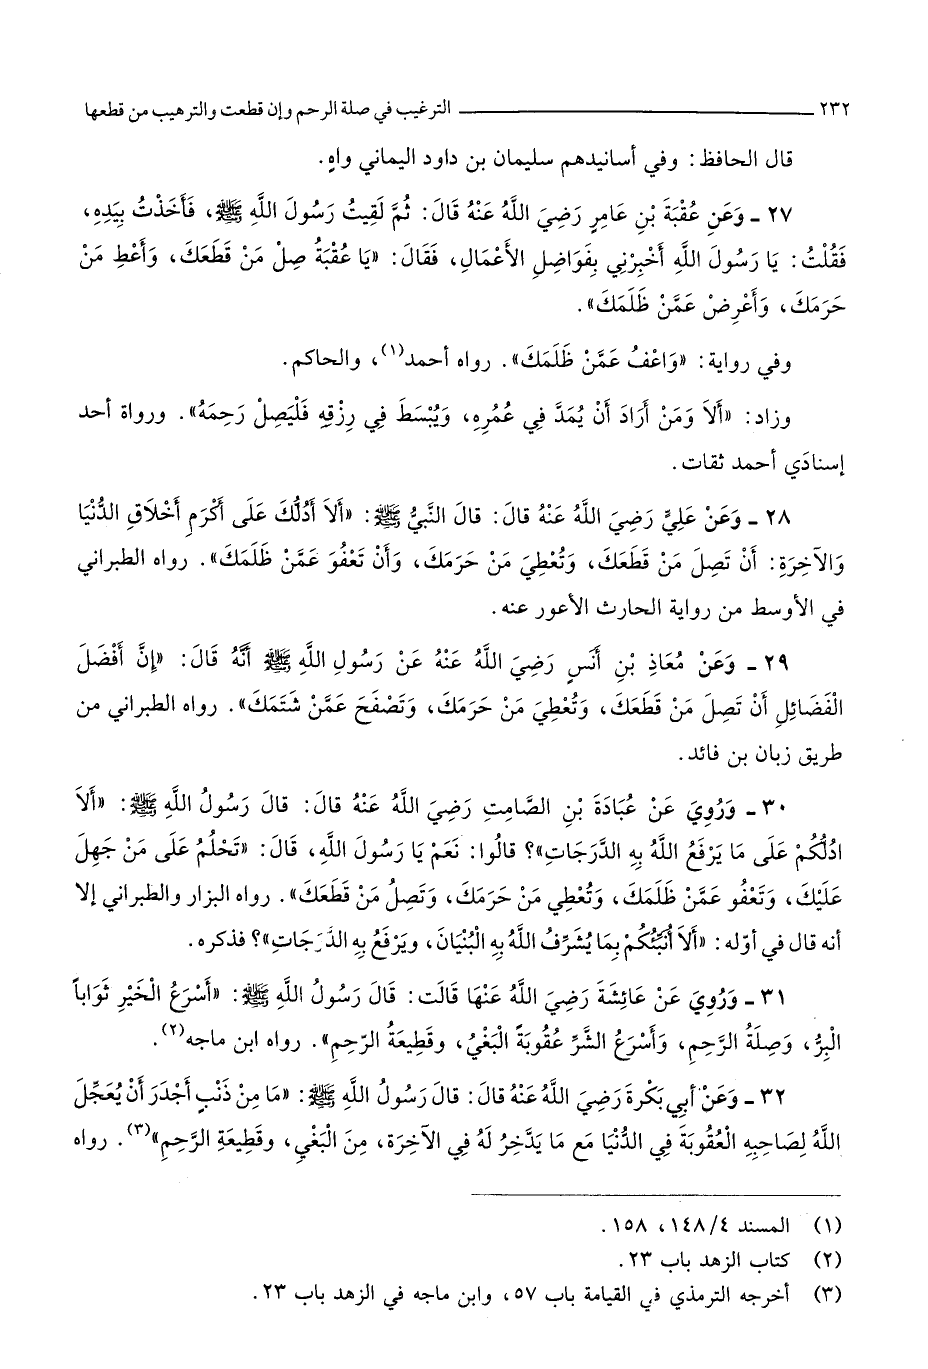 ٢٣٢ ـــــــــــــــــــــ الترغيب في صلة الرحم وإن قطعت والترهيب من قطعها
قال الحافظ: وفي أسانيدهم سليمان بن داود اليماني واهٍ.
٢٧ ـ وَعَنِ عُقْبَةَ بْنِ عَامِرٍ رَضِيَ اللَّهُ عَنْهُ قَالَ: ثُمَّ لَقِيتُ رَسُولَ اللَّهِ ﷺ، فَأَخَذْتُ بِيَدِهِ،
فَقُلْتُ: يَا رَسُولَ اللَّهِ أَخْبِرْنِي بِفَوَاضِلِ الأَعْمَالِ، فَقَالَ: «يَا عُقْبَةُ صِلْ مَنْ قَطَعَكَ، وَأَعْطِ مَنْ
حَرَمَكَ، وَأَعْرِضْ عَمَّنْ ظَلَمَكَ».
وفي رواية: «وَاعْفُ عَمَّنْ ظَلَمَكَ». رواه أحمد(١)، والحاكم.
وزاد: «أَلاَ وَمَنْ أَرَادَ أَنْ يُمَدَّ فِي عُمُرِهِ، وَيُبْسَطَ فِي رِزْقِهِ فَلْيَصِلْ رَحِمَهُ». ورواة أحد
إسنادَي أحمد ثقات.
٢٨ ـ وَعَنْ عَلِيٍّ رَضِيَ اللَّهُ عَنْهُ قَالَ: قالَ النَّبِيُّ ﷺ: «أَلاَ أَدُلُّكَ عَلَى أَكْرَمِ أَخْلَاقِ الدُّنْيَا
وَالآخِرَةِ: أَنْ تَصِلَ مَنْ قَطَعَكَ، وَتُعْطِيَ مَنْ حَرَمَكَ، وَأَنْ تَعْفُوَ عَمَّنْ ظَلَمَكَ». رواه الطبراني
في الأوسط من رواية الحارث الأعور عنه.
٢٩ ـ وَعَنْ مُعَاذِ بْنِ أَنَسٍ رَضِيَ اللَّهُ عَنْهُ عَنْ رَسُولِ اللَّهِ ﷺ أَنَّهُ قَالَ: «إِنَّ أَفْضَلَ
الْفَضَائِلِ أَنْ تَصِلَ مَنْ قَطَعَكَ، وَتُعْطِيَ مَنْ حَرَمَكَ، وَتَصْفَحَ عَمَّنْ شَتَمَكَ». رواه الطبراني من
طريق زبان بن فائد.
٣٠ ـ وَرُوِيَ عَنْ عُبَادَةَ بْنِ الصَّامِتِ رَضِيَ اللَّهُ عَنْهُ قالَ: قالَ رَسُولُ اللَّهِ ﷺ: «أَلاَ
ادُلُّكُمْ عَلَى مَا يَرْفَعُ اللَّهُ بِهِ الدَّرَجَاتِ»؟ قالُوا: نَعَمْ يَا رَسُولَ اللَّهِ، قَالَ: «تَحْلُمُ عَلَى مَنْ جَهِلَ
عَلَيْكَ، وَتَعْفُو عَمَّنْ ظَلَمَكَ، وَتُعْطِي مَنْ حَرَمَكَ، وَتَصِلُ مَنْ قَطَعَكَ». رواه البزار والطبراني إلا
أنه قال في أوّله: «أَلاَ أُنَبِّئُكُمْ بِمَا يُشَرِّفُ اللَّهُ بِهِ الْبُنْيَانَ، وَيَرْفَعُ بِهِ الدَّرَجَاتِ»؟ فذكره.
٣١ ـ وَرُوِيَ عَنْ عَائِشَةَ رَضِيَ اللَّهُ عَنْهَا قَالَت: قَالَ رَسُولُ اللَّهِ ﷺ: «أَسْرَعُ الْخَيْرِ ثَوَاباً
الْبِرُّ، وَصِلَةُ الرَّحِمِ، وَأَسْرَعُ الشَّرِّ عُقُوبَةً الْبَغْيُ، وقَطِيعَةُ الرّحِمِ». رواه ابن ماجه(٢).
٣٢ ـ وَعَنْ أَبِي بَكْرَةَ رَضِيَ اللَّهُ عَنْهُ قَالَ: قالَ رَسُولُ اللَّهِ ﷺ: «مَا مِنْ ذَنْبٍ أَجْدَرَ أَنْ يُعَجِّلَ
اللَّهُ لِصَاحِبِهِ الْعُقُوبَةَ فِي الدُّنْيَا مَعَ مَا يَدَّخِرُ لَهُ فِي الآخِرَةِ، مِنَ الْبَغْيِ، وقَطِيعَةِ الرَّحِمِ»(٣). رواه
(١) المسند ٤/١٤٨، ١٥٨.
(٢) كتاب الزهد باب ٢٣.
(٣) أخرجه الترمذي في القيامة باب ٥٧، وابن ماجه في الزهد باب ٢٣.